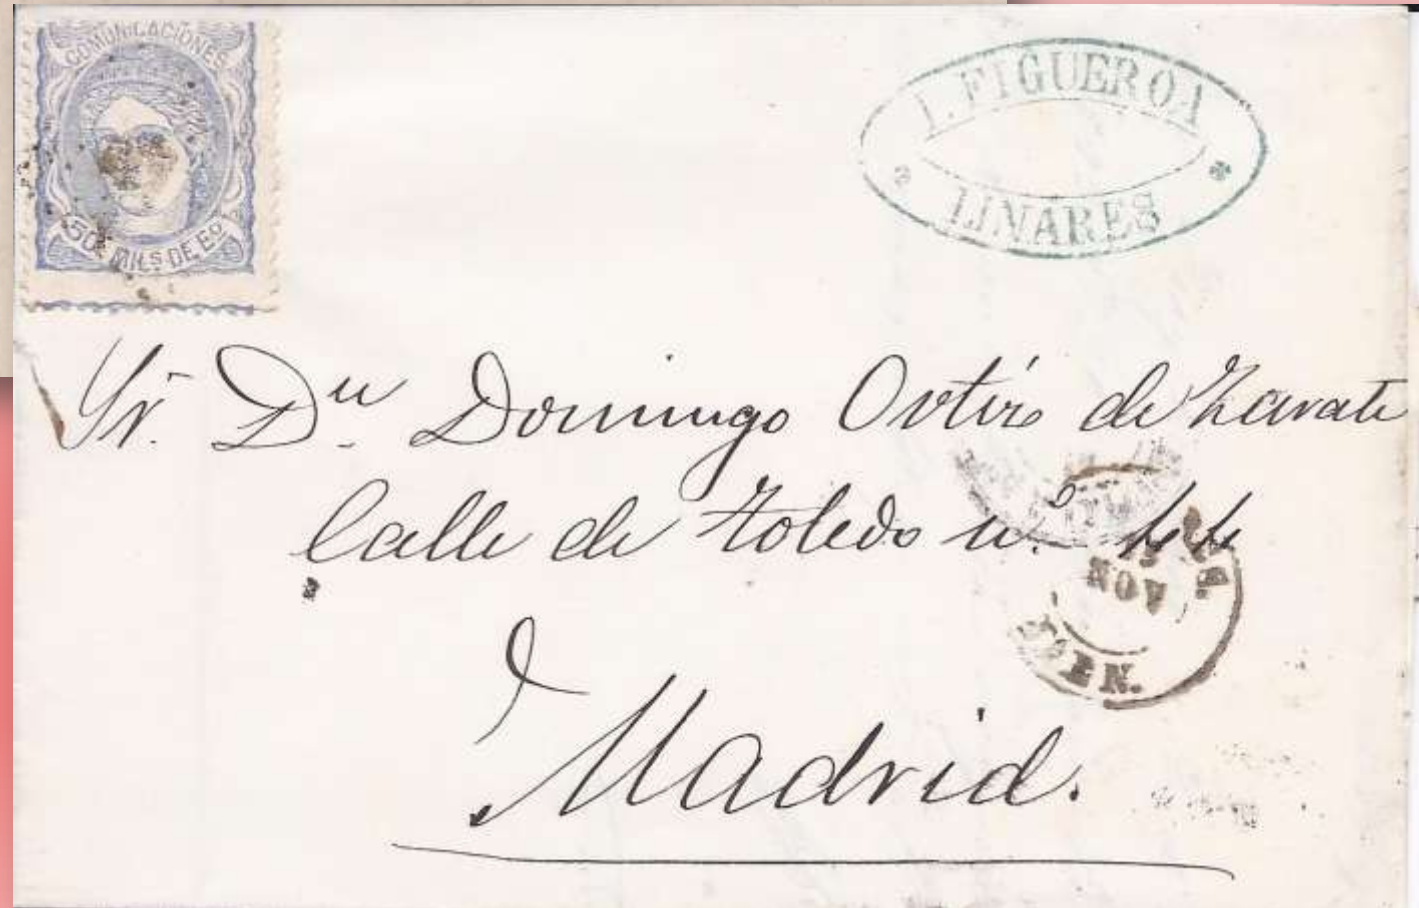 COMUNICACIONES
50 MILS DE Eo
I. FIGUEROA
LINARES
Sr. Dn Domingo Ortiz de Zarate
Calle de Toledo nº 44
NOV
Madrid.